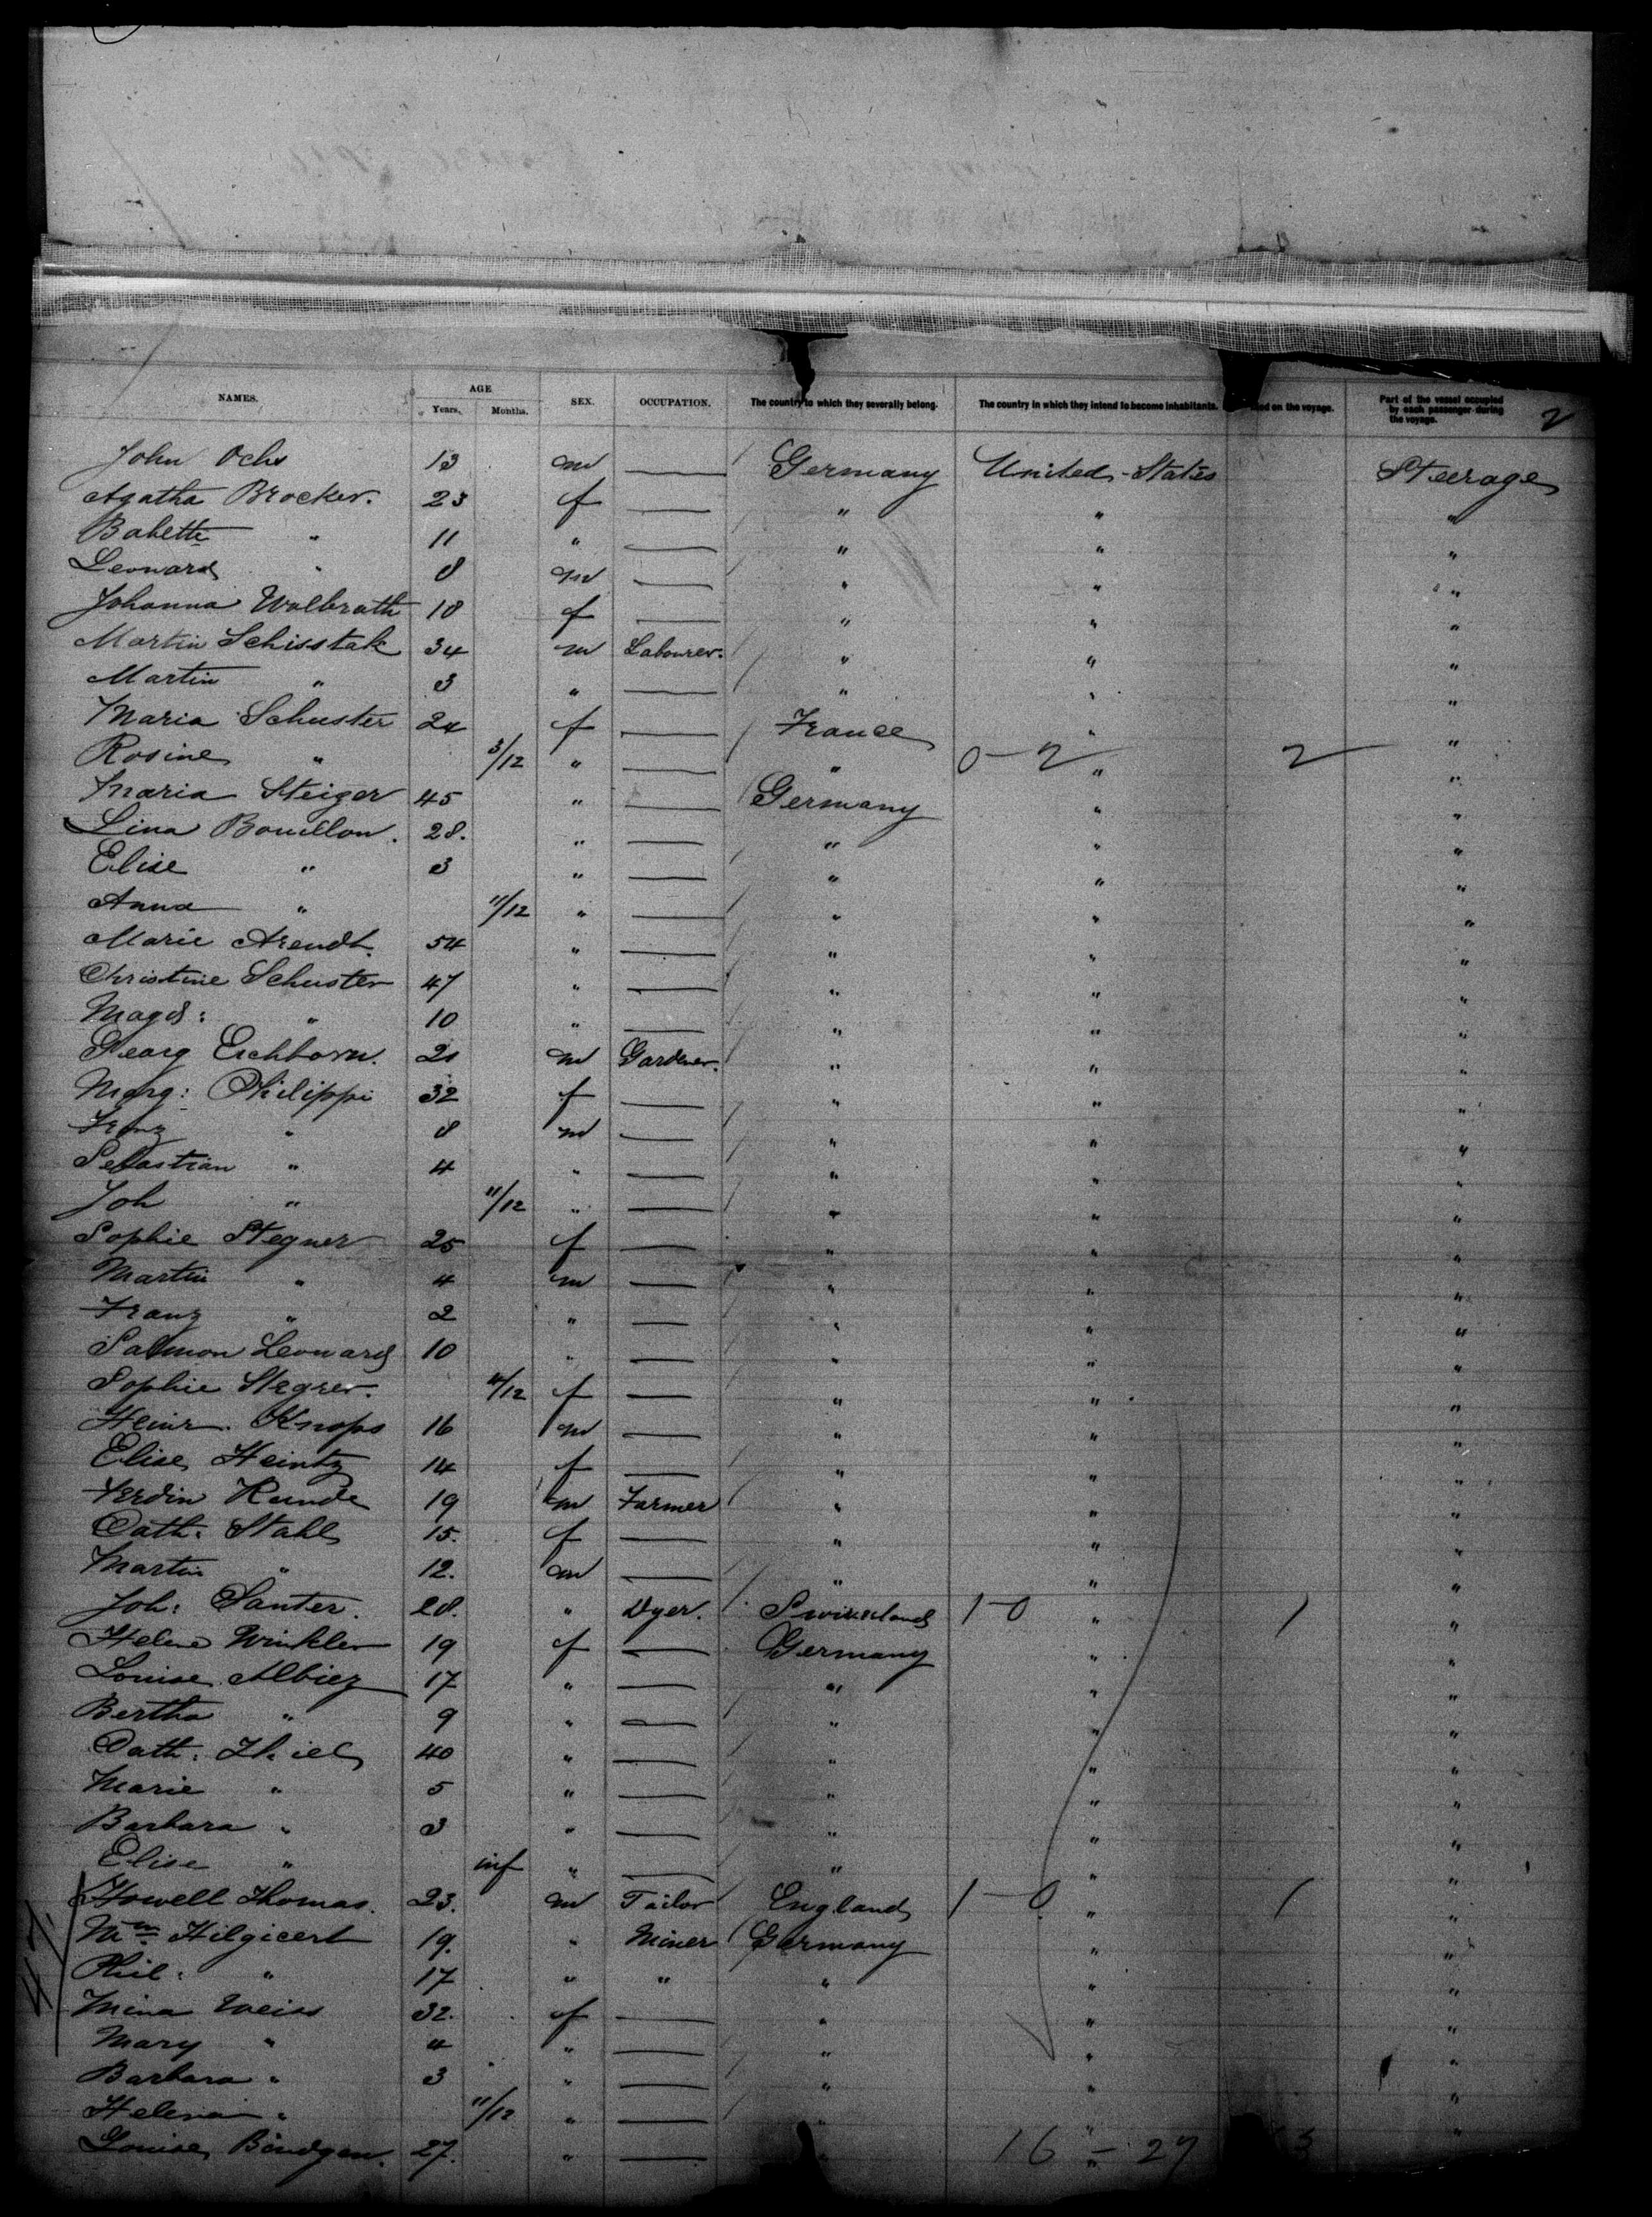 NAMES. AGE Years. Months. SEX. OCCUPATION. The country to which they severally belong. The country in which they intend to become inhabitants. on the voyage. Part of the vessel occupied by each passenger during the voyage. 2
John Ochs 13 m — Germany United States Steerage
Agatha Brocker. 23 f — " " "
Babette " 11 " — " " "
Leonard " 8 m — " " "
Johanna Walbrath 18 f — " " "
Martin Schisstak 34 m Labourer. " " "
Martin " 3 " — " " "
Maria Schuster 24 f — France " "
Rosine " 3/12 " — " 0-2 " 2 "
Maria Steiger 45 " — Germany " "
Lina Bouillon. 28. " — " " "
Elise " 3 " — " " "
Anna " 11/12 " — " " "
Marie Arendt. 54 " — " " "
Christine Schuster 47 " — " " "
Magd: " 10 " — " " "
Georg Eichhorn. 21 m Gardener. " " "
Marg: Philippi 32 f — " " "
Franz " 8 m — " " "
Sebastian " 4 " — " " "
Joh " 11/12 " — " " "
Sophie Stegner 25 f — " " "
Martin " 4 m — " " "
Franz " 2 " — " " "
Salomon Leonard 10 " — " " "
Sophie Stegner. 11/12 f — " " "
Heinr. Knops 16 m — " " "
Elise Heintz 14 f — " " "
Ferdin Kunde 19 m Farmer " " "
Cath: Stahl 15. f — " " "
Martin " 12. m — " " "
Joh: Santer. 28. " Dyer. Switzerland 1-0 " 1 "
Helene Winkler 19 f — Germany " "
Louise Albiez 17 " — " " "
Bertha " 9 " — " " "
Cath: Thiel 40 " — " " "
Marie " 5 " — " " "
Barbara " 3 " — " " "
Elise " inf " — " " "
Howell Thomas. 23. m Tailor England 1-0 " 1 "
Wm Hilgicert 19. " Miner Germany " "
Phil: " 17 " " " " "
Mina Weiss 32. f — " " "
Mary " 4 " — " " "
Barbara " 3 " — " " "
Helena " 11/12 " — " " "
Louise Bindgen. 27. " — " " "
16 - 27 3
47